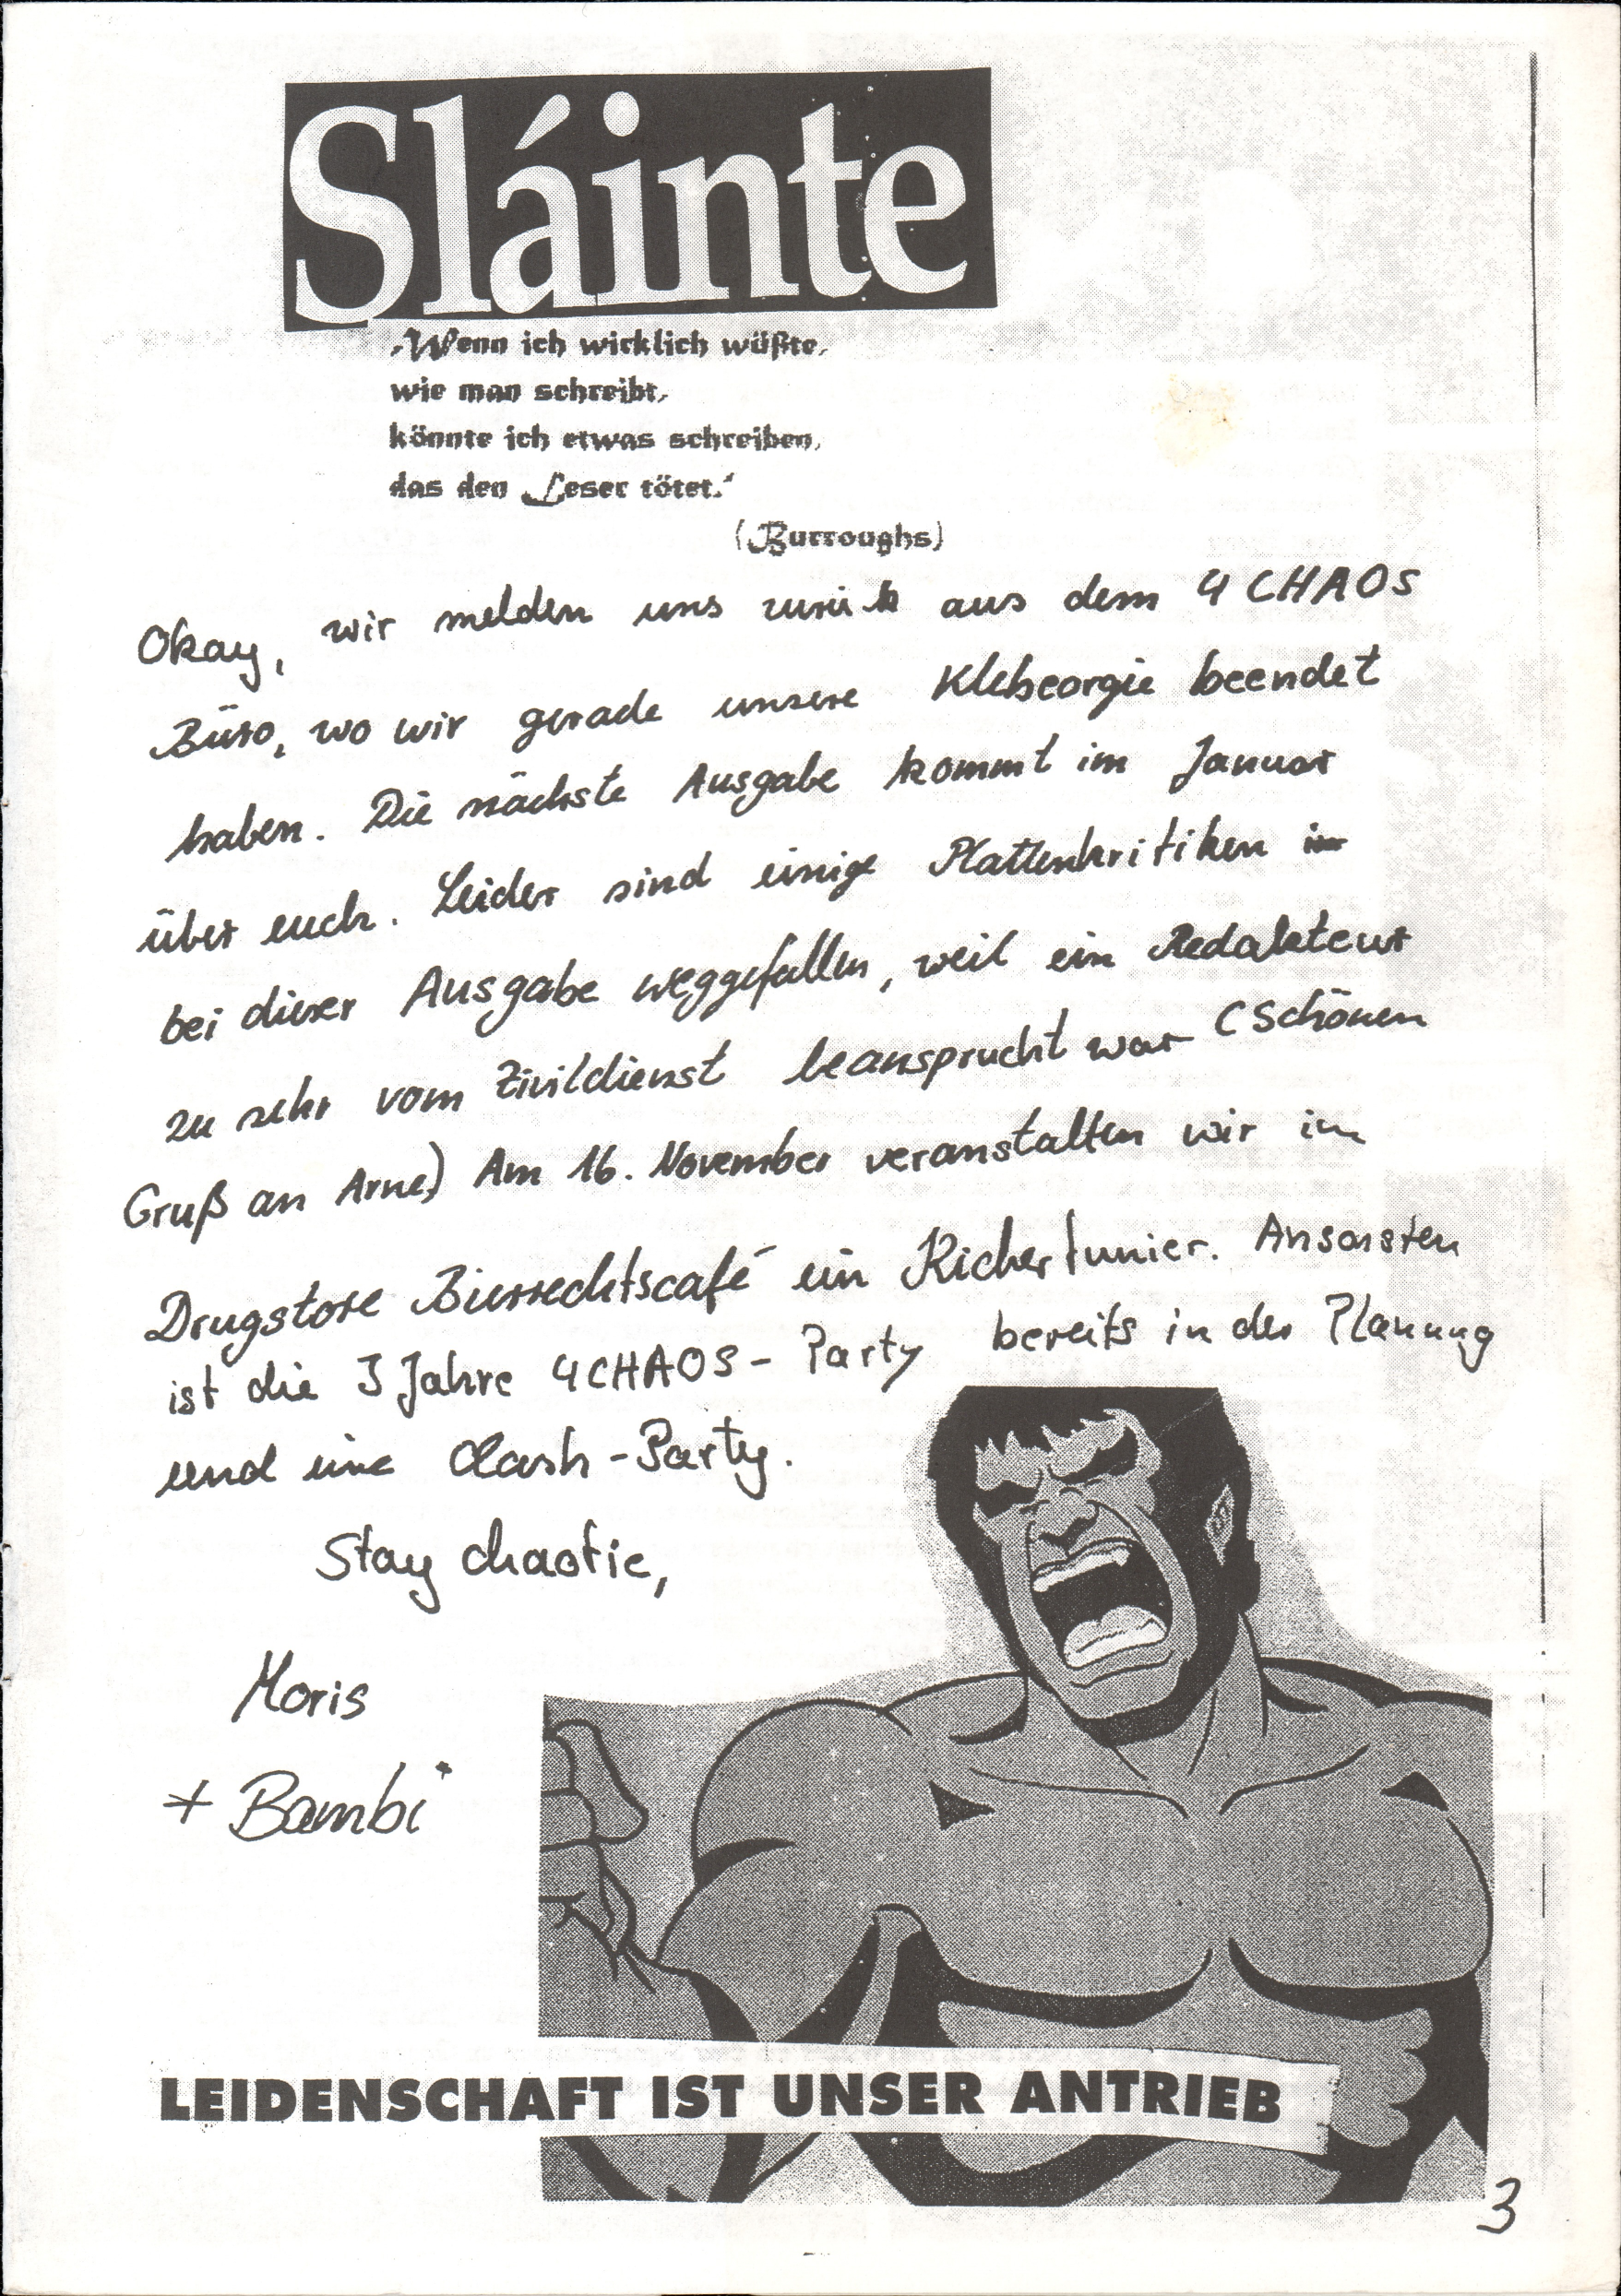 Sláinte
„Wenn ich wirklich wüßte,
wie man schreibt,
könnte ich etwas schreiben,
das den Leser tötet.“
(Burroughs)
Okay, wir melden uns zurück aus dem 4 CHAOS
Büro, wo wir gerade unsere Klebeorgie beendet
haben. Die nächste Ausgabe kommt im Januar
über euch. Leider sind einige Plattenkritiken
bei dieser Ausgabe weggefallen, weil ein Redakteur
zu sehr vom Zivildienst beansprucht war (Schönen
Gruß an Arne) Am 16. November veranstalten wir im
Drugstore Bierrechtscafé ein Kickertunier. Ansonsten
ist die 3 Jahre 4CHAOS-Party bereits in der Planung
und eine Clash-Party.
Stay chaotic,
Moris
+ Bambi
LEIDENSCHAFT IST UNSER ANTRIEB
3